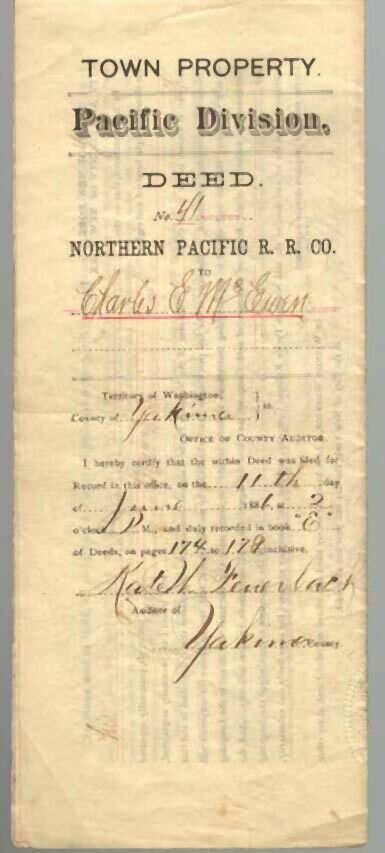 TOWN PROPERTY.
Pacific Division.
DEED.
No. 41
NORTHERN PACIFIC R. R. CO.
TO
Charles E. McEwen
Territory of Washington, } ss.
County of Yakima }
OFFICE OF COUNTY AUDITOR
I hereby certify that the within Deed was filed for
Record in this office, on the 11th day
of June 1886, at 2
o'clock P M., and duly recorded in book "E"
of Deeds, on pages 174 to 178 inclusive.
Feuerbach
Auditor of
Yakima County